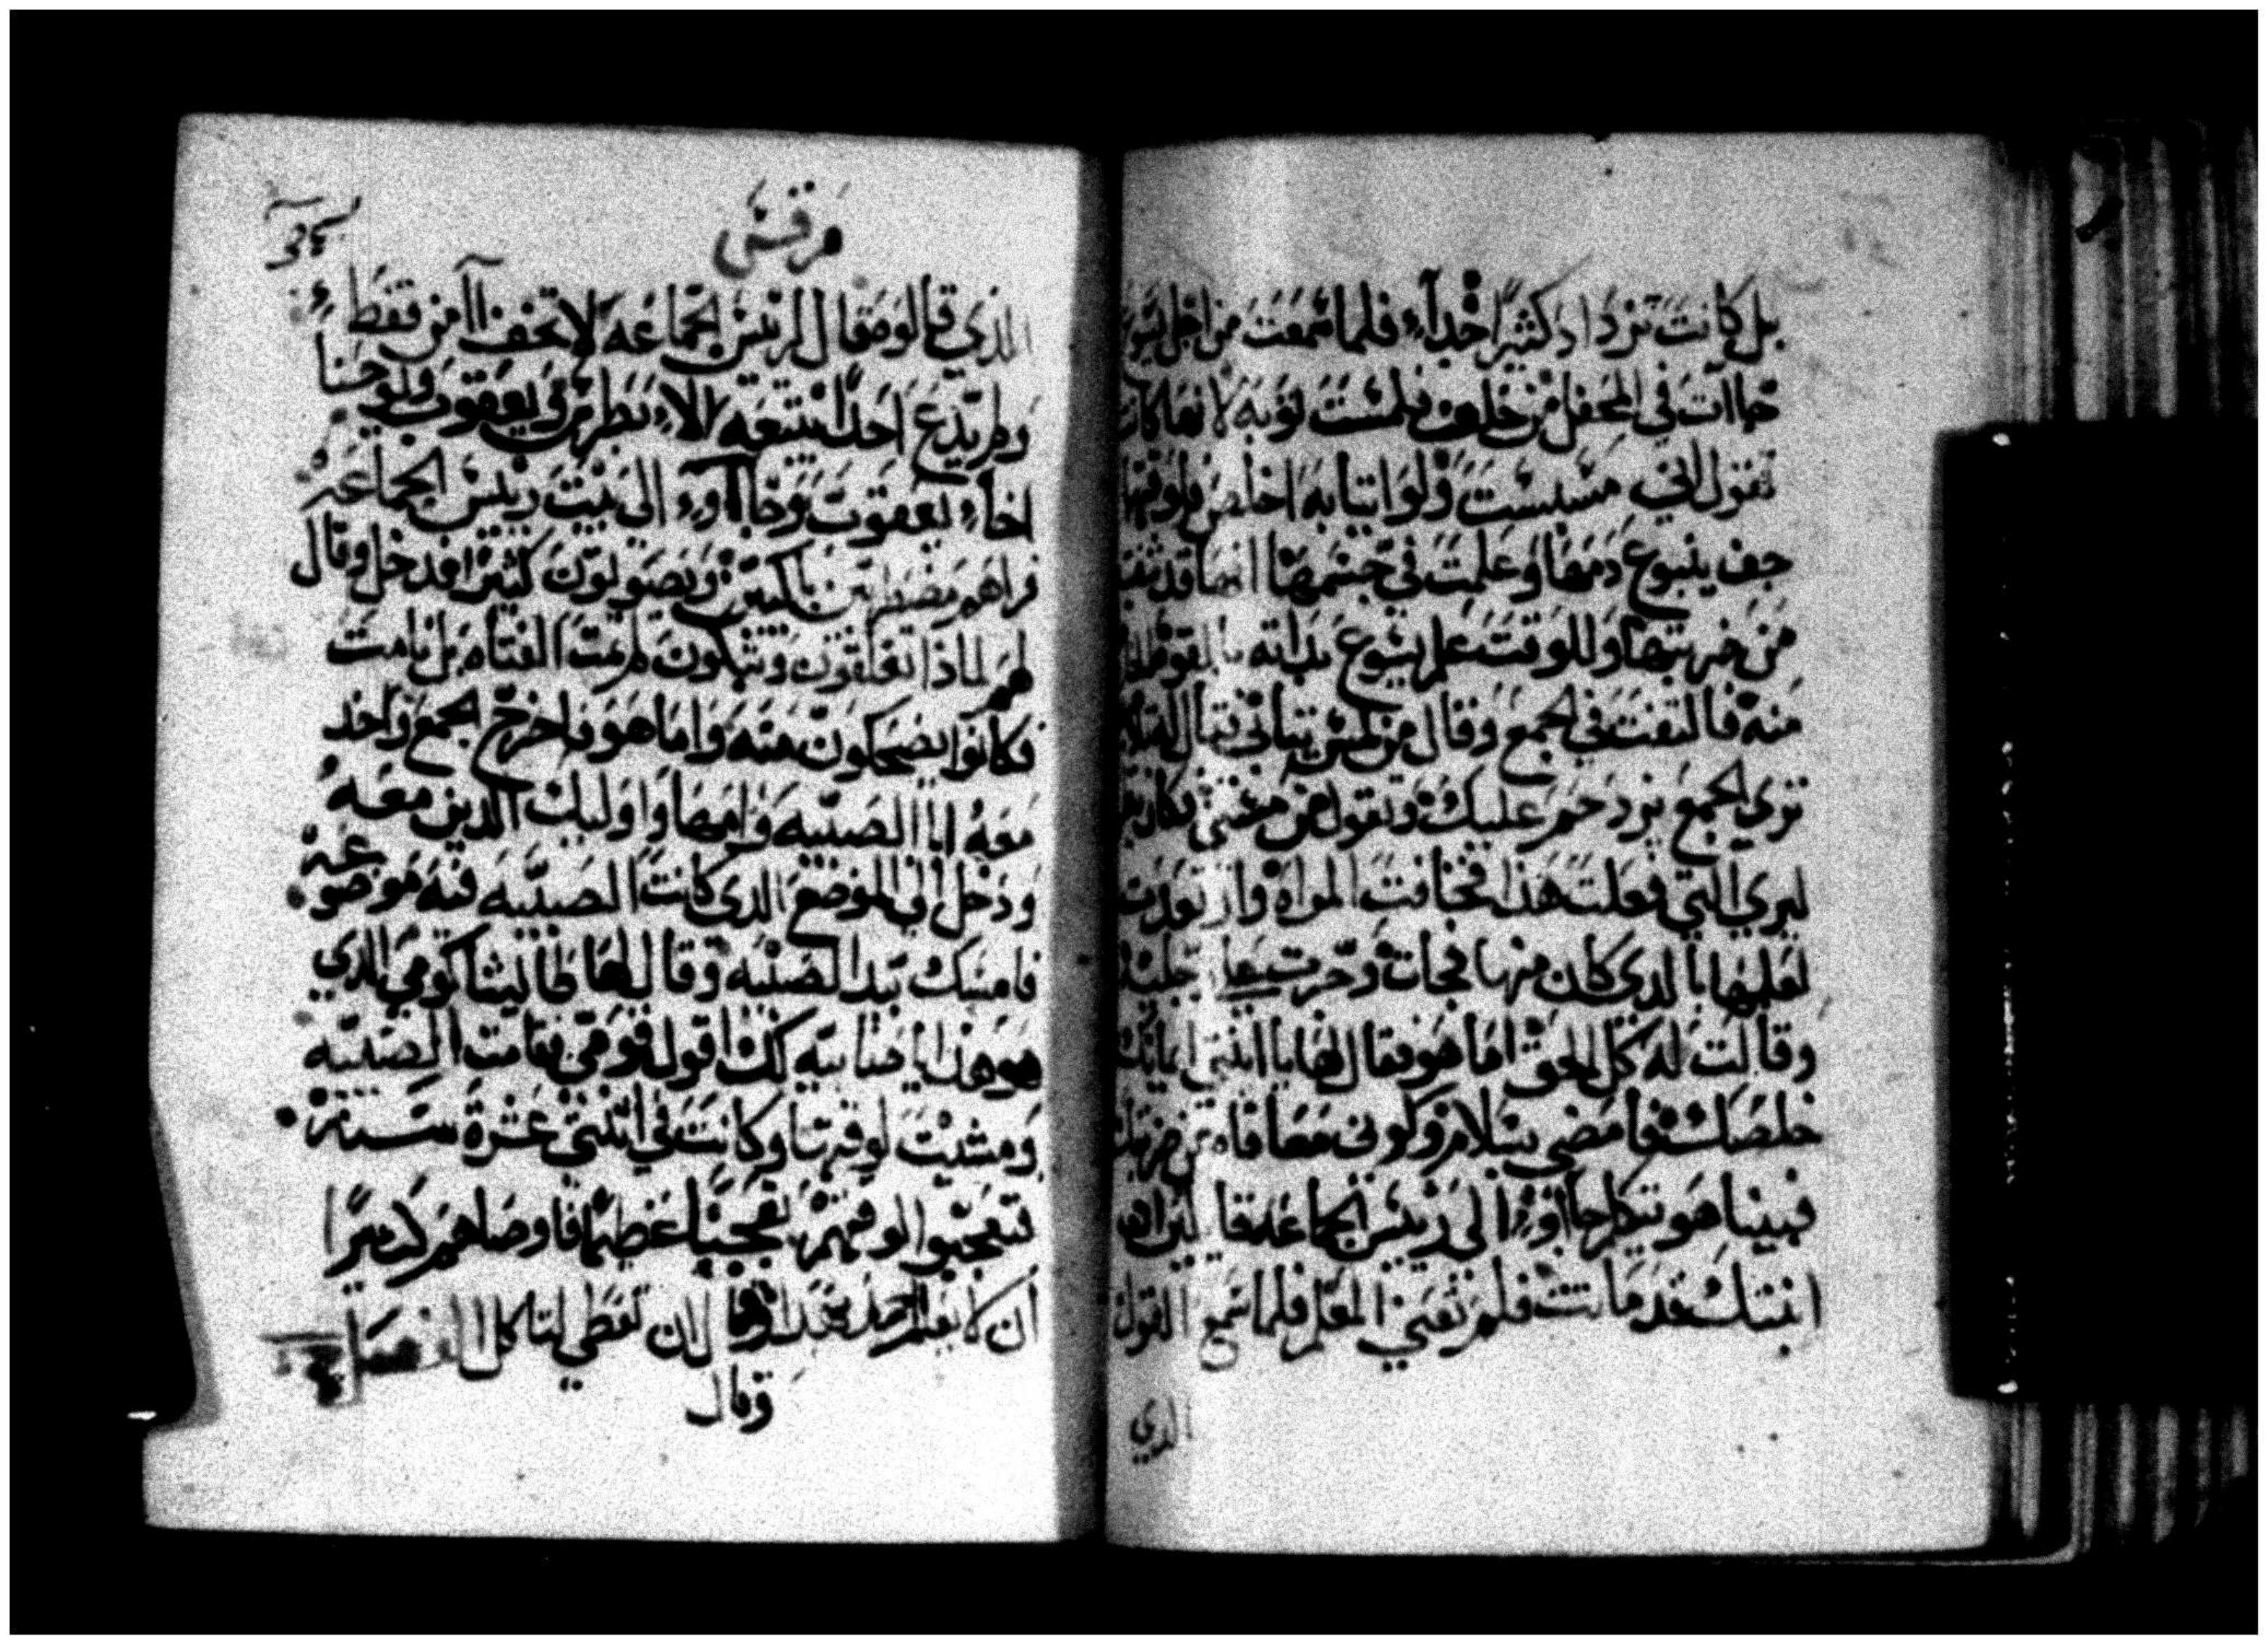 بل كانت تزداد كثيرًا جدآء فلما سمعت من اجل يسوع
جاات في المحفل من خلف فلمست ثوبه لانها كانت
تقول اني مسست ولو اثيابه اخلص ولوقتها
جف ينبوع دمها وعلمت في جسمها انها قد شفت
من ضربتها وللوقت علم يشوع بداته بالقوه
منه فالتفت في الجمع وقال من لمس ثيابي فقال له
تري الجمع يزدحم عليك وتقول من مسني فكان
ليري التي فعلت هذا فخافت المراه وارتعدت
لعلمها بالدي كان منها فجات وخرت
وقالت له كل الحق اما هو فقال لها يا ابنتي ايمانك
خلصك فامضي بسلام وكوني معافاه من ضربتك
فبينا هو يتكلم جااوء الي رييس الجماعه قايلين
ابنتك قد ماتت فلم تعني المعلم فلما سمع القول
الدي
مرقس
الدي قالو فقال لرييس الجماعه لا تخف اامن فقط
ولم يدع احدًا يتبعه الاء بطرس ويعقوب ويوحنا
اخاء يعقوب وجااوء الي بيت رييس الجماعه
فراهم مضطربين باكين ويصولون كثيرا فدخل وقال
لهم لماذا تقلقون وتبكون لم تمت الفتاه بل نامت
فكانوا يضحكون منه واما هو فاخرج الجمع واخد
معه ابا الصبيه وامها واوليك الدين معه
ودخل الي الموضع الدي كانت الصبيه فيه موضوعه
فامسك بيد الصبيه وقال لها طاليثا كومي الدي
هو هذا يا صابيه لك اقول قومي فقامت الصبيه
ومشيت لوقتها وكانت في اثنتي عشرة سنة
فتعجبوا لوقتهم تعجبًا عظيما فاوصاهم كثيرا
ان لا يعلم احد بهدا وقال ان تعطي لتاكل
وقال